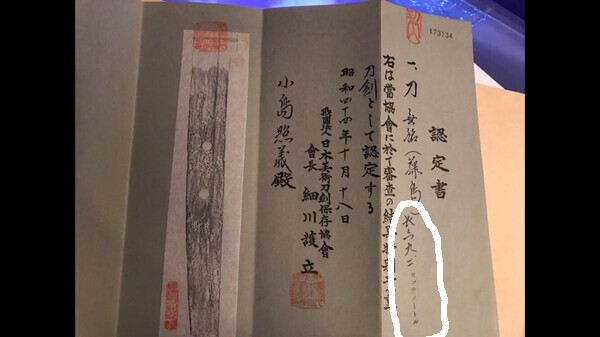 173134
認定書
一、刀 無銘(藤島) 長六 センチメートル
右は當協會に於て審査の結果特別貴重
刀剣として認定する
昭和四十四年十月十八日
財團法人日本美術刀剣保存協會
會長 細川護立
小島照義殿